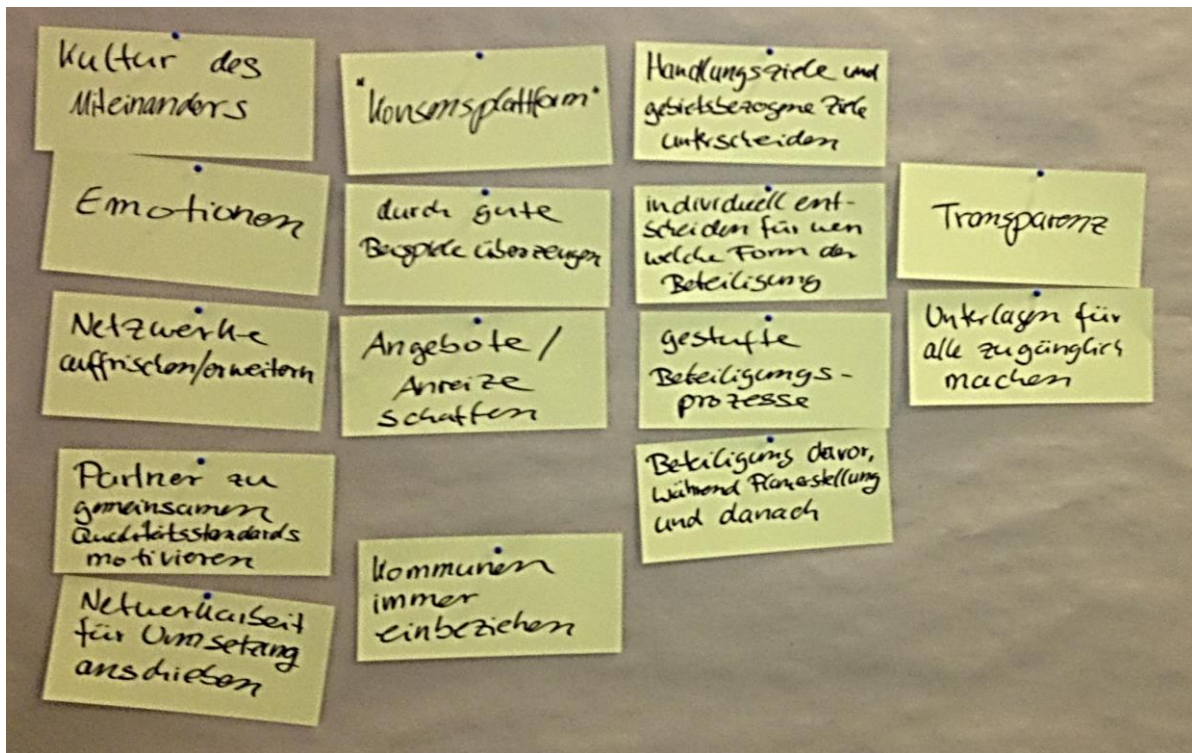 Kultur des
Miteinanders
Emotionen
Netzwerke
auffrischen/erweitern
Partner zu
gemeinsamen
Qualitätsstandards
motivieren
Netwerkarbeit
für Umsetzung
anschieben
"Konsensplattform"
durch gute
Beispiele überzeugen
Angebote/
Anreize
schaffen
Kommunen
immer
einbeziehen
Handlungsziele und
gebietsbezogene Ziele
unterscheiden
individuell ent-
scheiden für wen
welche Form der
Beteiligung
gestufte
Beteiligungs-
prozesse
Beteiligung davor,
während Planerstellung
und danach
Transparenz
Unterlagen für
alle zugänglich
machen